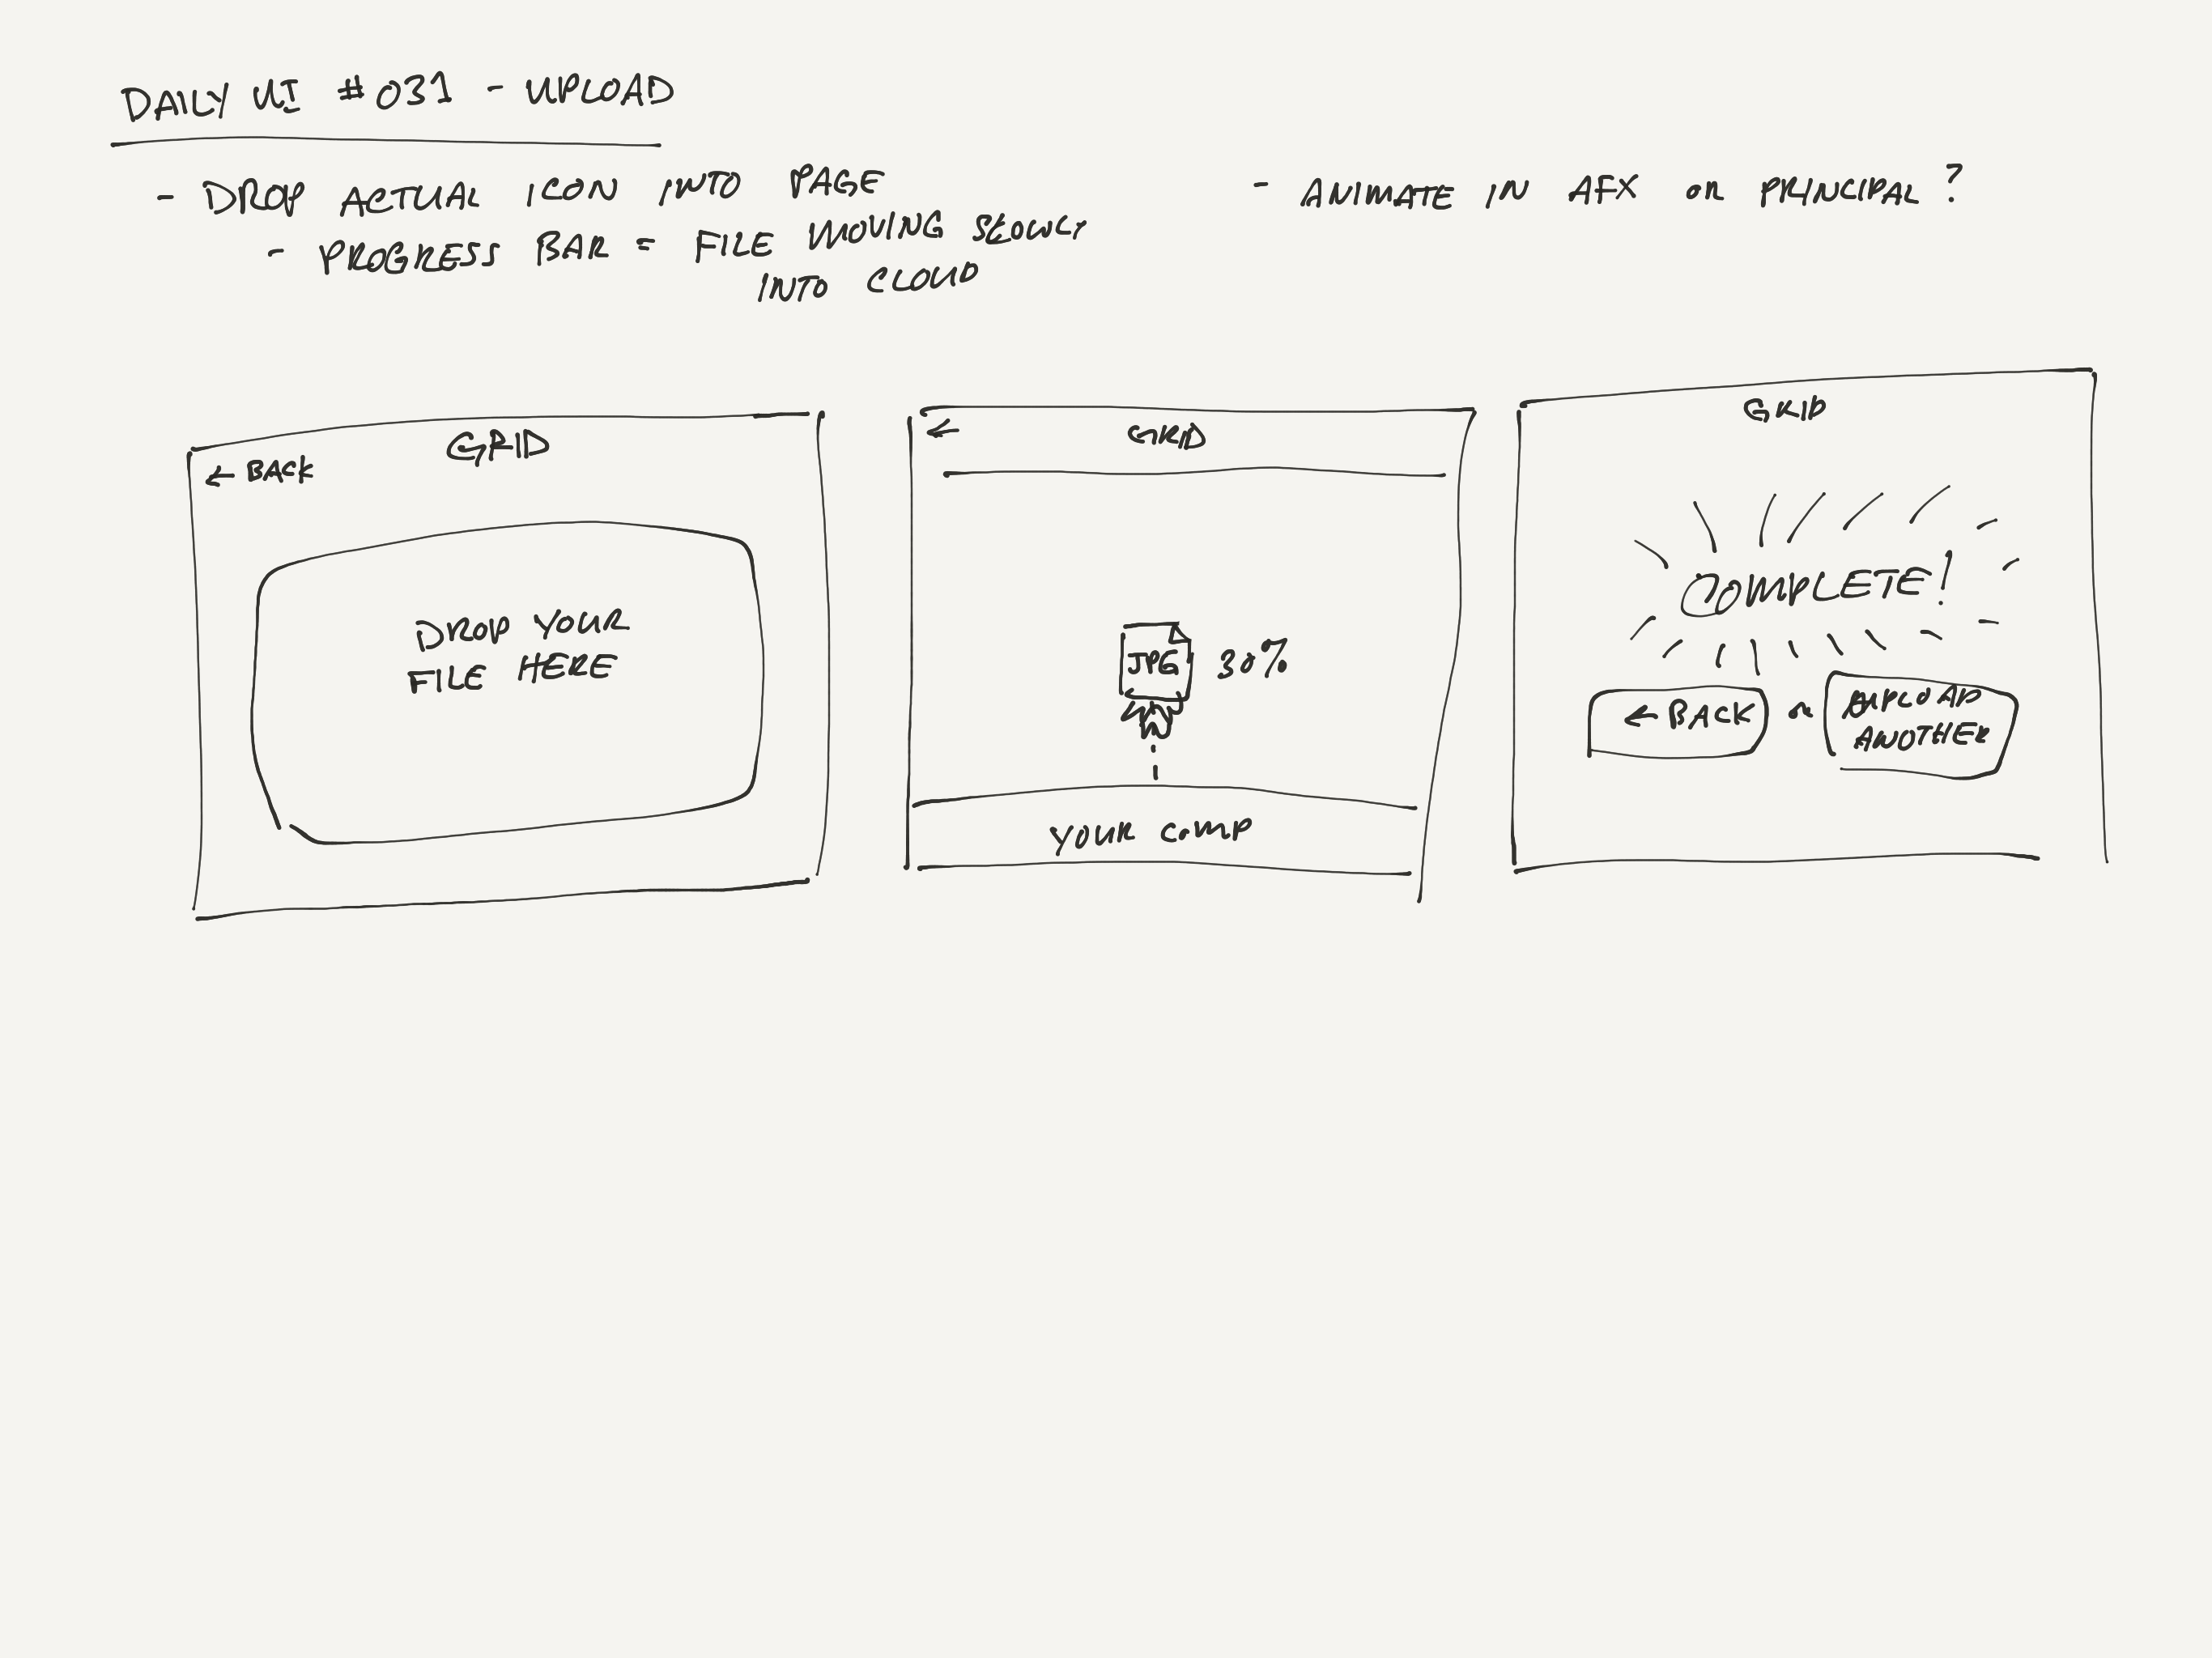 DAILY UI #031 - UPLOAD
- DROP ACTUAL ICON INTO PAGE
- PROGRESS BAR = FILE MOVING SLOWLY
INTO CLOUD
- ANIMATE IN AFX OR PRINCIPAL?
GRID
← BACK
DROP YOUR
FILE HERE
←
GRID
JPG 30%
YOUR COMP
GRID
COMPLETE!
← BACK OR UPLOAD
ANOTHER